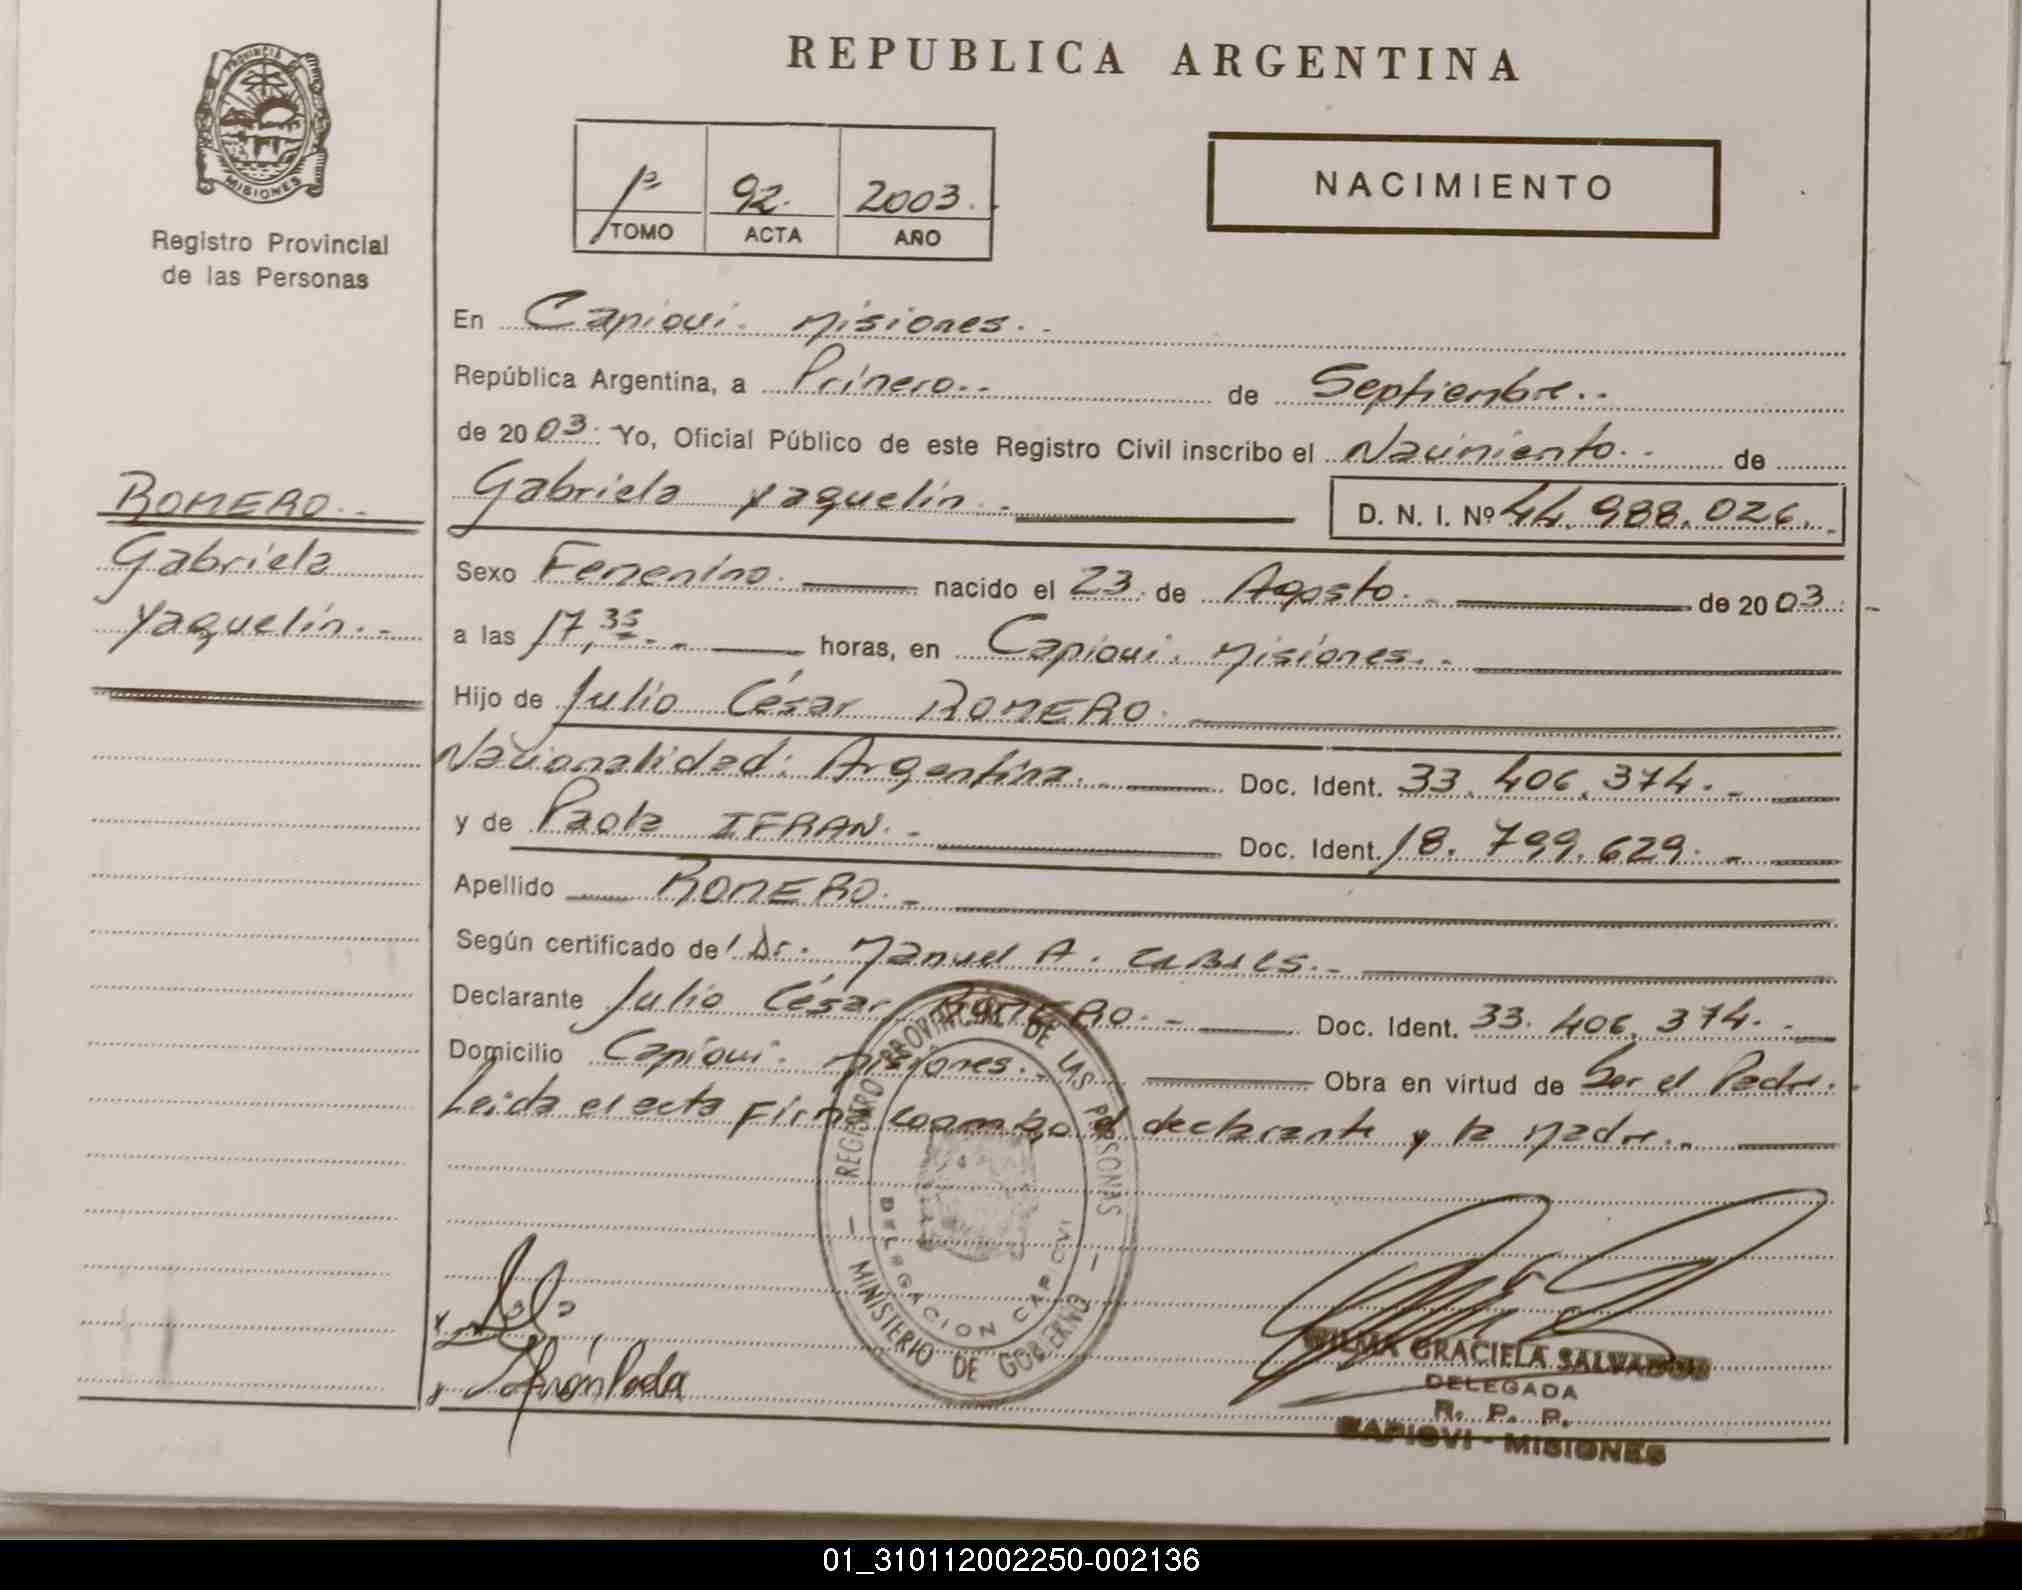 PROVINCIA DE
MISIONES
Registro Provincial
de las Personas
ROMERO.-
Gabriela
Yaquelín.-
REPUBLICA ARGENTINA
1º 92. 2003.
TOMO ACTA AÑO
NACIMIENTO
En Capioví. Misiones.-
República Argentina, a Primero.- de Septiembre.-
de 2003. Yo, Oficial Público de este Registro Civil inscribo el Nacimiento.- de
Gabriela Yaquelín.- D. N. I. Nº 44.988.026.-
Sexo Femenino. nacido el 23. de Agosto.- de 2003.-
a las 17,35.- horas, en Capioví. Misiones.-
Hijo de Julio César ROMERO.
Nacionalidad: Argentina.- Doc. Ident. 33.406.374.-
y de Paola IFRAN.- Doc. Ident. 18.799.629.-
Apellido ROMERO.-
Según certificado de Dr. Manuel A.
Declarante Julio César ROMERO.- Doc. Ident. 33.406.374.-
Domicilio Capioví. Misiones.- Obra en virtud de Ser el Padre.-
Leída el acta Firma conmigo el declarante y la Madre.-
REGISTRO PROVINCIAL DE LAS PERSONAS
DELEGACION CAPIOVI
- MINISTERIO DE GOBIERNO -
Paola
WILMA GRACIELA SALVADOR
DELEGADA
R. P. P.
CAPIOVI - MISIONES
01_310112002250-002136